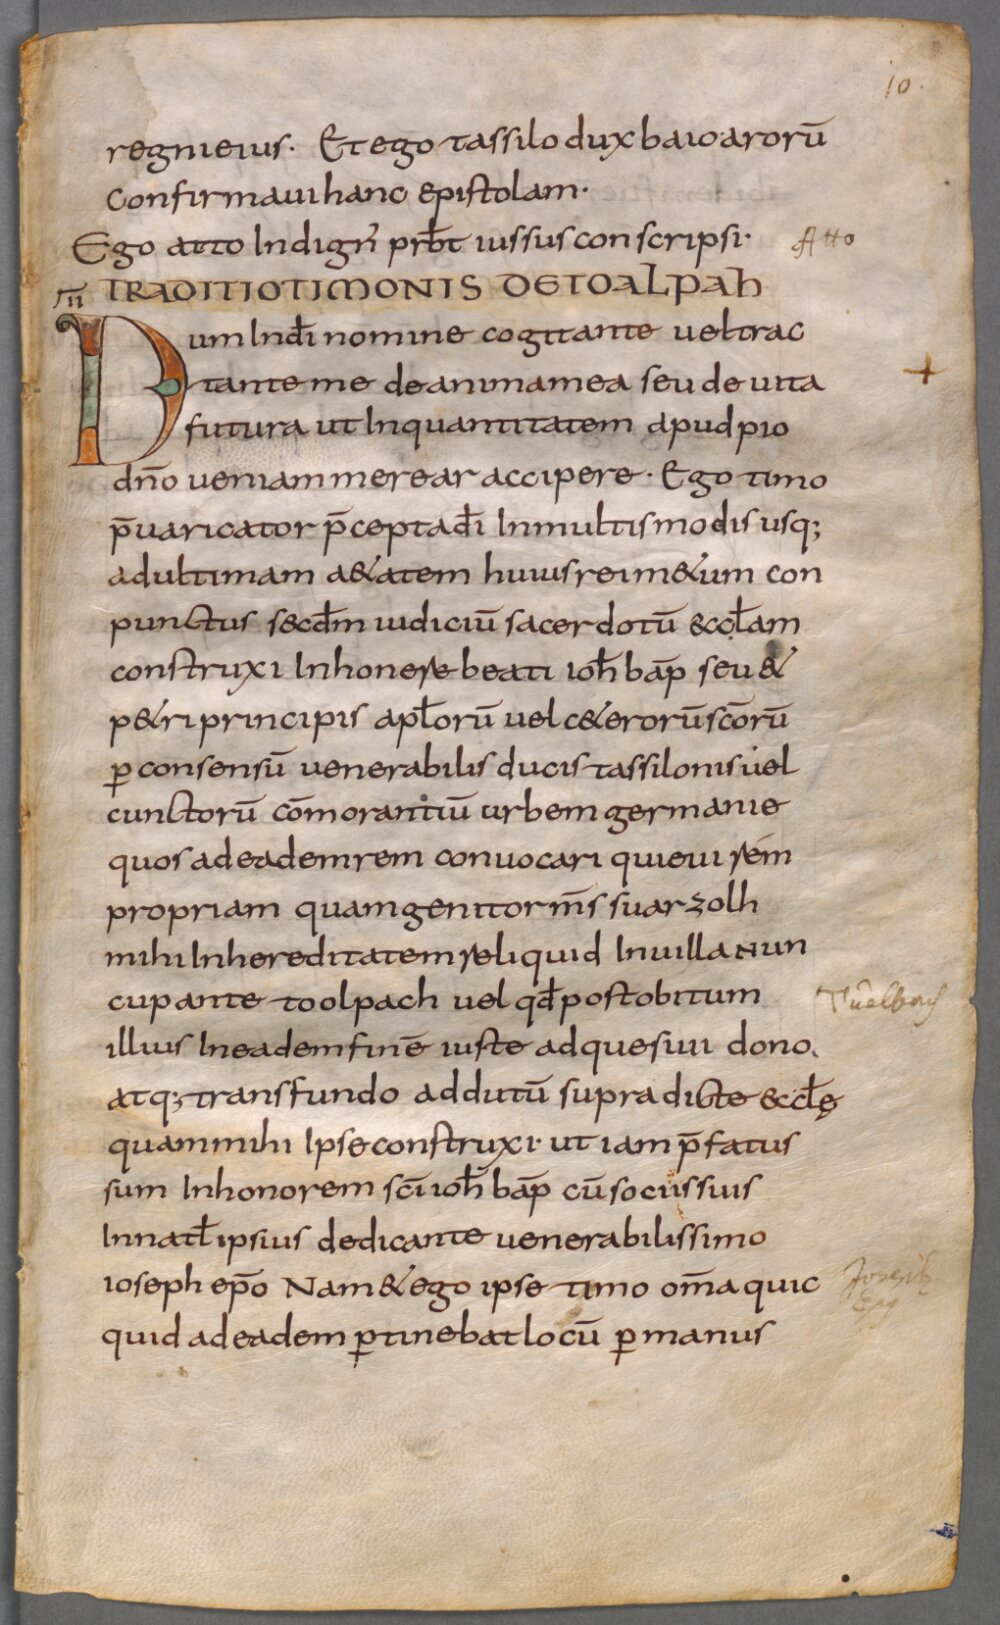 10.
regni eius. Et ego tassilo dux baioarorū
confirmaui hanc epistolam.
Ego atto Indign̄ prb̄t iussus conscripsi. Atto
TRADITIO TIMONIS DE TOALPAH
Dum In dī nomine cogitante uel trac
tante me de anima mea seu de uita
futura ut In quantitatem apud pio
dn̄o ueniam merear accipere. Ego timo
p̄uaricator p̄cepta dī In multis modis usq;
ad ultimam a&atem huius rei m&um con
punctus secd̄m iudiciū sacerdotū &ccl̄am
construxi In honere beati ioh̄ bap̄ seu &
p&ri principis apl̄orū uel c&erorū sc̄orū
ꝑ consensū uenerabilis ducis tassilonis uel
cunctorū cōmorantiū urbem germanie
quos ad eadem rem conuocari quieui rem
propriam quam genitor m̄s suarzolh
mihi In hereditatem reliquid In uilla nun
cupante toolpach uel qđ post obitum
illius In eadem finē iuste adquesiui dono
Tuelbach
atq; transfundo ad dutū supra dicte &ccl̄ę
quam mihi Ipse construxi. ut iam p̄fatus
sum In honorem sc̄i ioh̄ bap̄ cū sociis suis
In natl̄ ipsius dedicante uenerabilissimo
ioseph ep̄o Nam & ego ipse timo om̄a quic
Joseph
Epŷ
quid ad eadem ꝑtinebat locū ꝑ manus